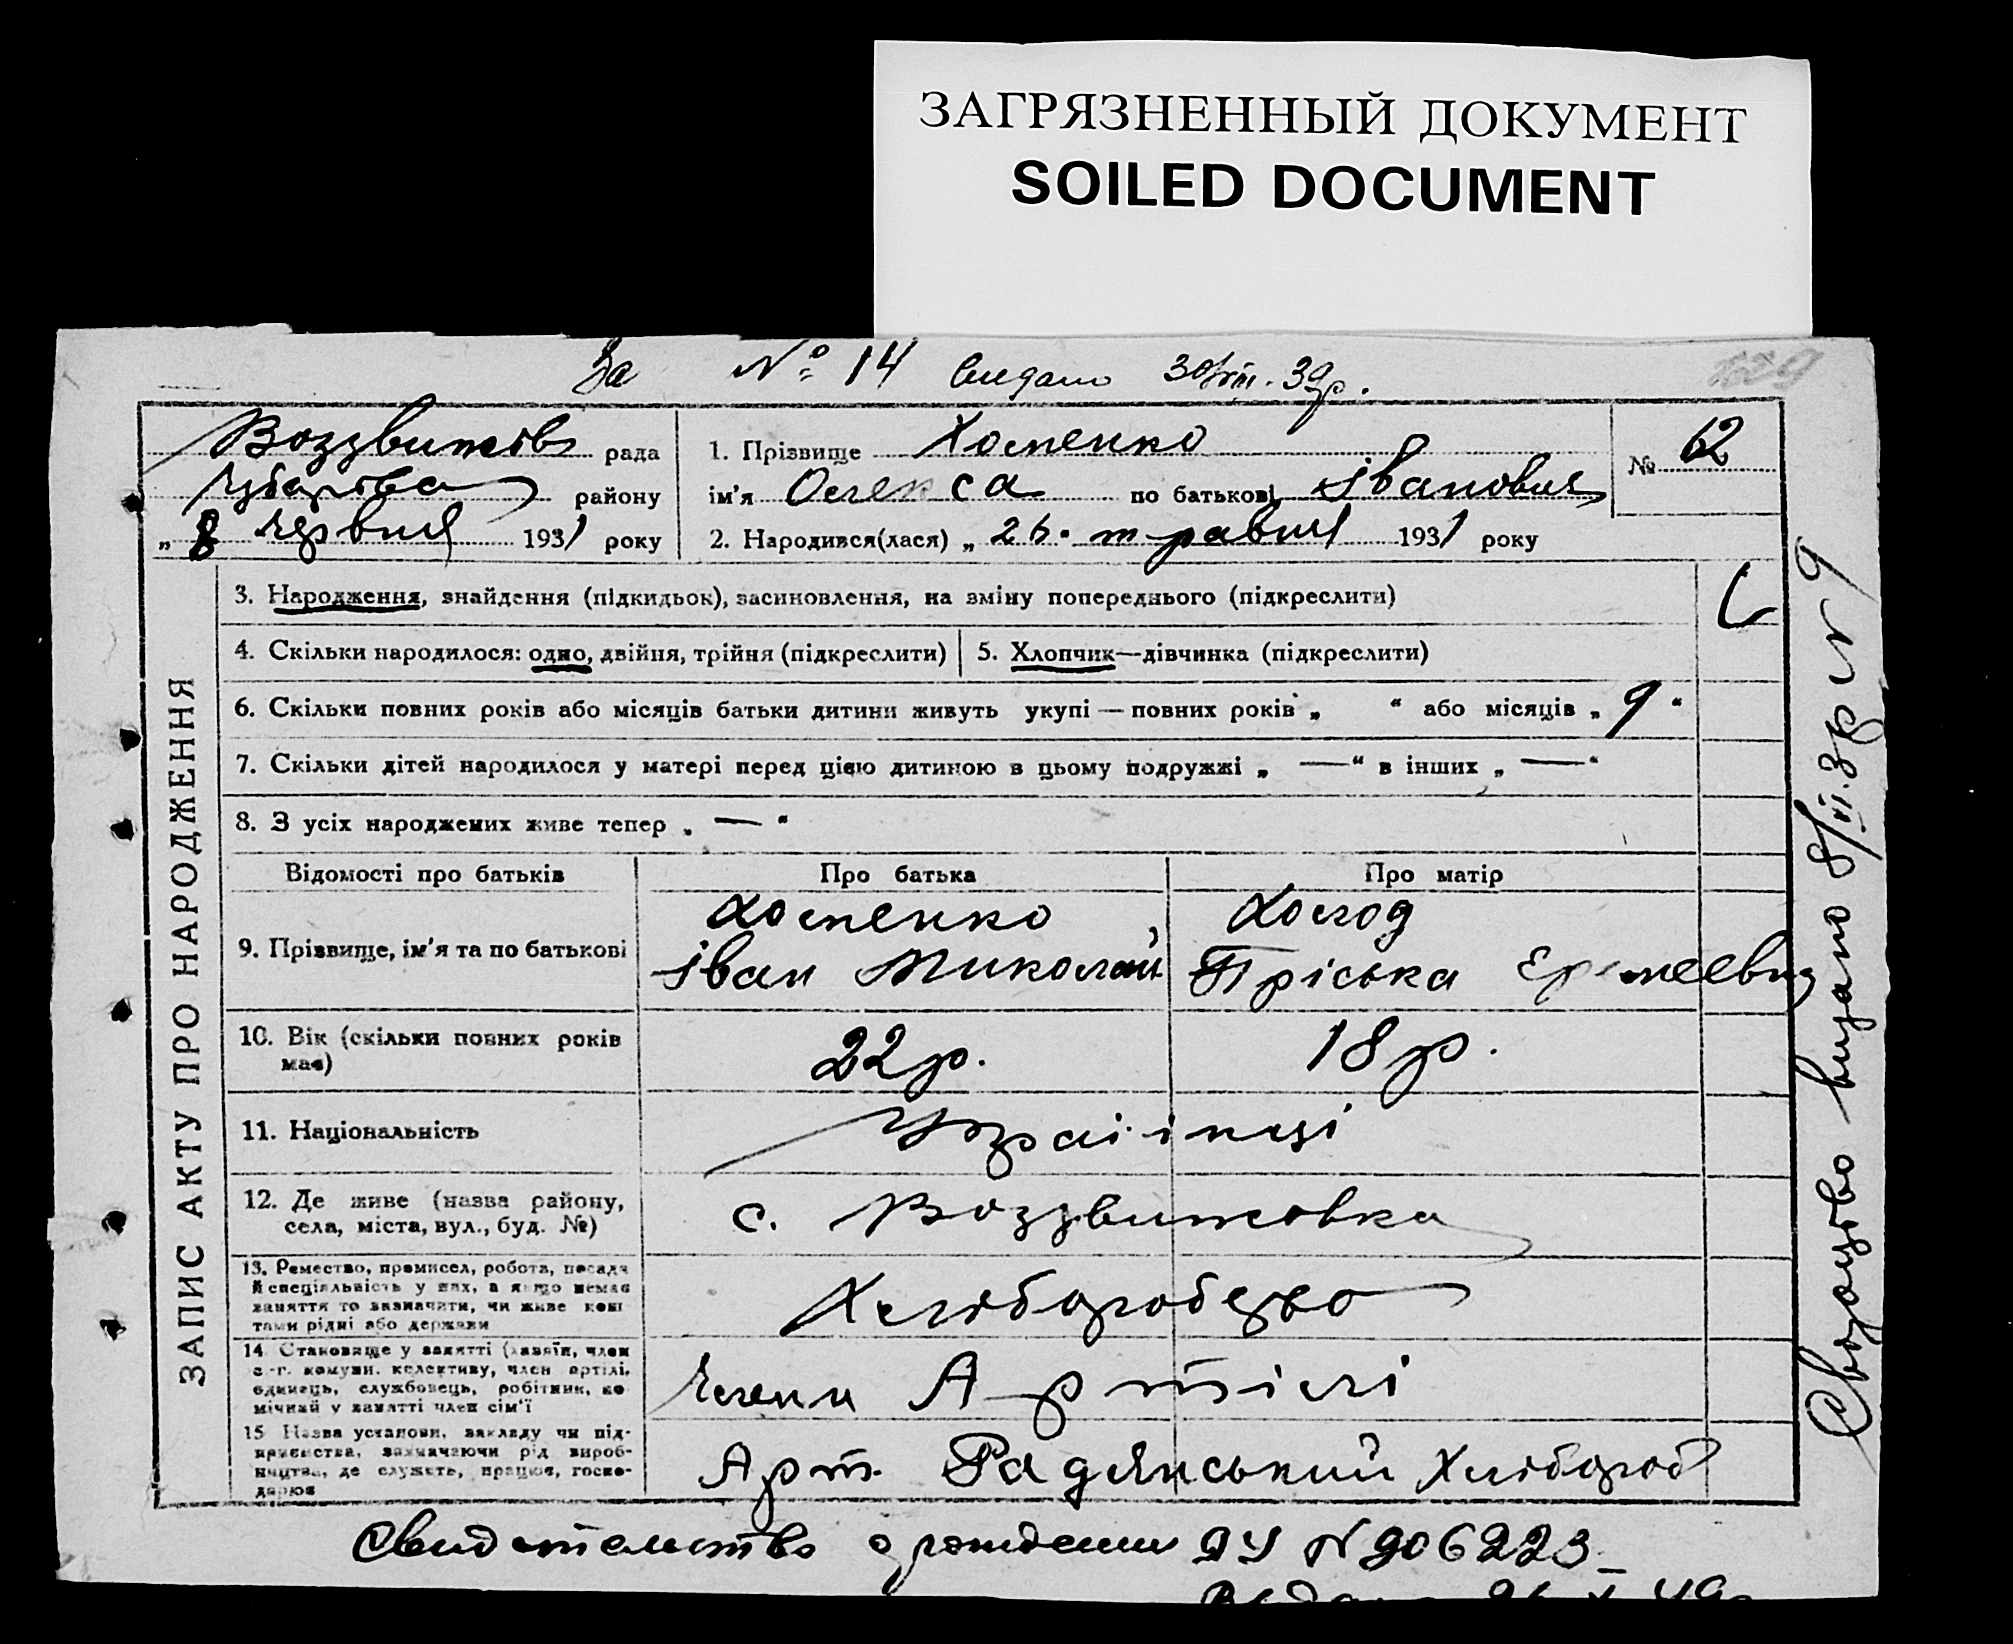 ЗАГРЯЗНЕННЫЙ ДОКУМЕНТ
SOILED DOCUMENT
За № 14 30/VIII. 39р.
рада
району
„ 8 червня 1931 року
1. Прізвище Хоменко
ім'я Олекса по батькові Іванович
№ 62
2. Народився(лася) „ 26. травня 1931 року
ЗАПИС АКТУ ПРО НАРОДЖЕННЯ
3. Народження, знайдення (підкидьок), засиновлення, на зміну попереднього (підкреслити)
4. Скільки народилося: одно, двійня, трійня (підкреслити) 5. Хлопчик—дівчинка (підкреслити)
6. Скільки повних років або місяців батьки дитини живуть укупі — повних років „ “ або місяців „ 9 “
7. Скільки дітей народилося у матері перед цією дитиною в цьому подружжі „ — “ в інших „ — “
8. З усіх народжених живе тепер „ — “
Відомості про батьків Про батька Про матір
9. Прізвище, ім'я та по батькові
Хоменко
Іван Миколай
Холод
Пріська
10. Вік (скільки повних років має) 22 р. 18 р.
11. Національність Українці
12. Де живе (назва району, села, міста, вул., буд. №) с. Воздвижовка
13. Ремество, промисел, робота, посада й спеціяльність у них, а якщо немає заняття то зазначити, чи живе коштами рідні або держави
Хліборобство
14. Становище у занятті (хазяїн, член с.-г. комуни, колективу, член артілі, одинець, службовець, робітник, помічний у занятті член сім'ї
Член Артілі
15. Назва установи, закладу чи підприємства, зазначаючи рід виробництва, де служить, працює, господарює
Арт. Радянський Хлібороб
Свидетельство о рождении ЯУ N 906223
Свідоцтво видано 8/VI. 31р N 9